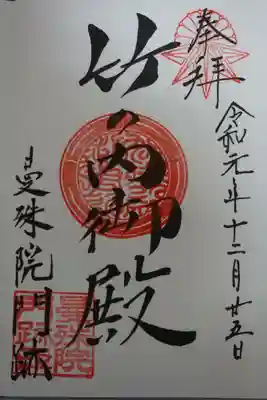 奉拝
令和元年十二月廿五日
竹の内御殿
曼殊院門跡
曼殊院
門跡